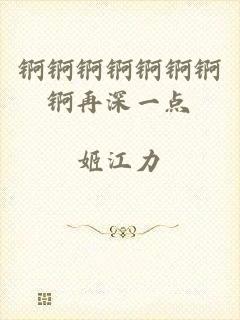 锕锕锕锕锕锕锕
锕再深一点
姬江力